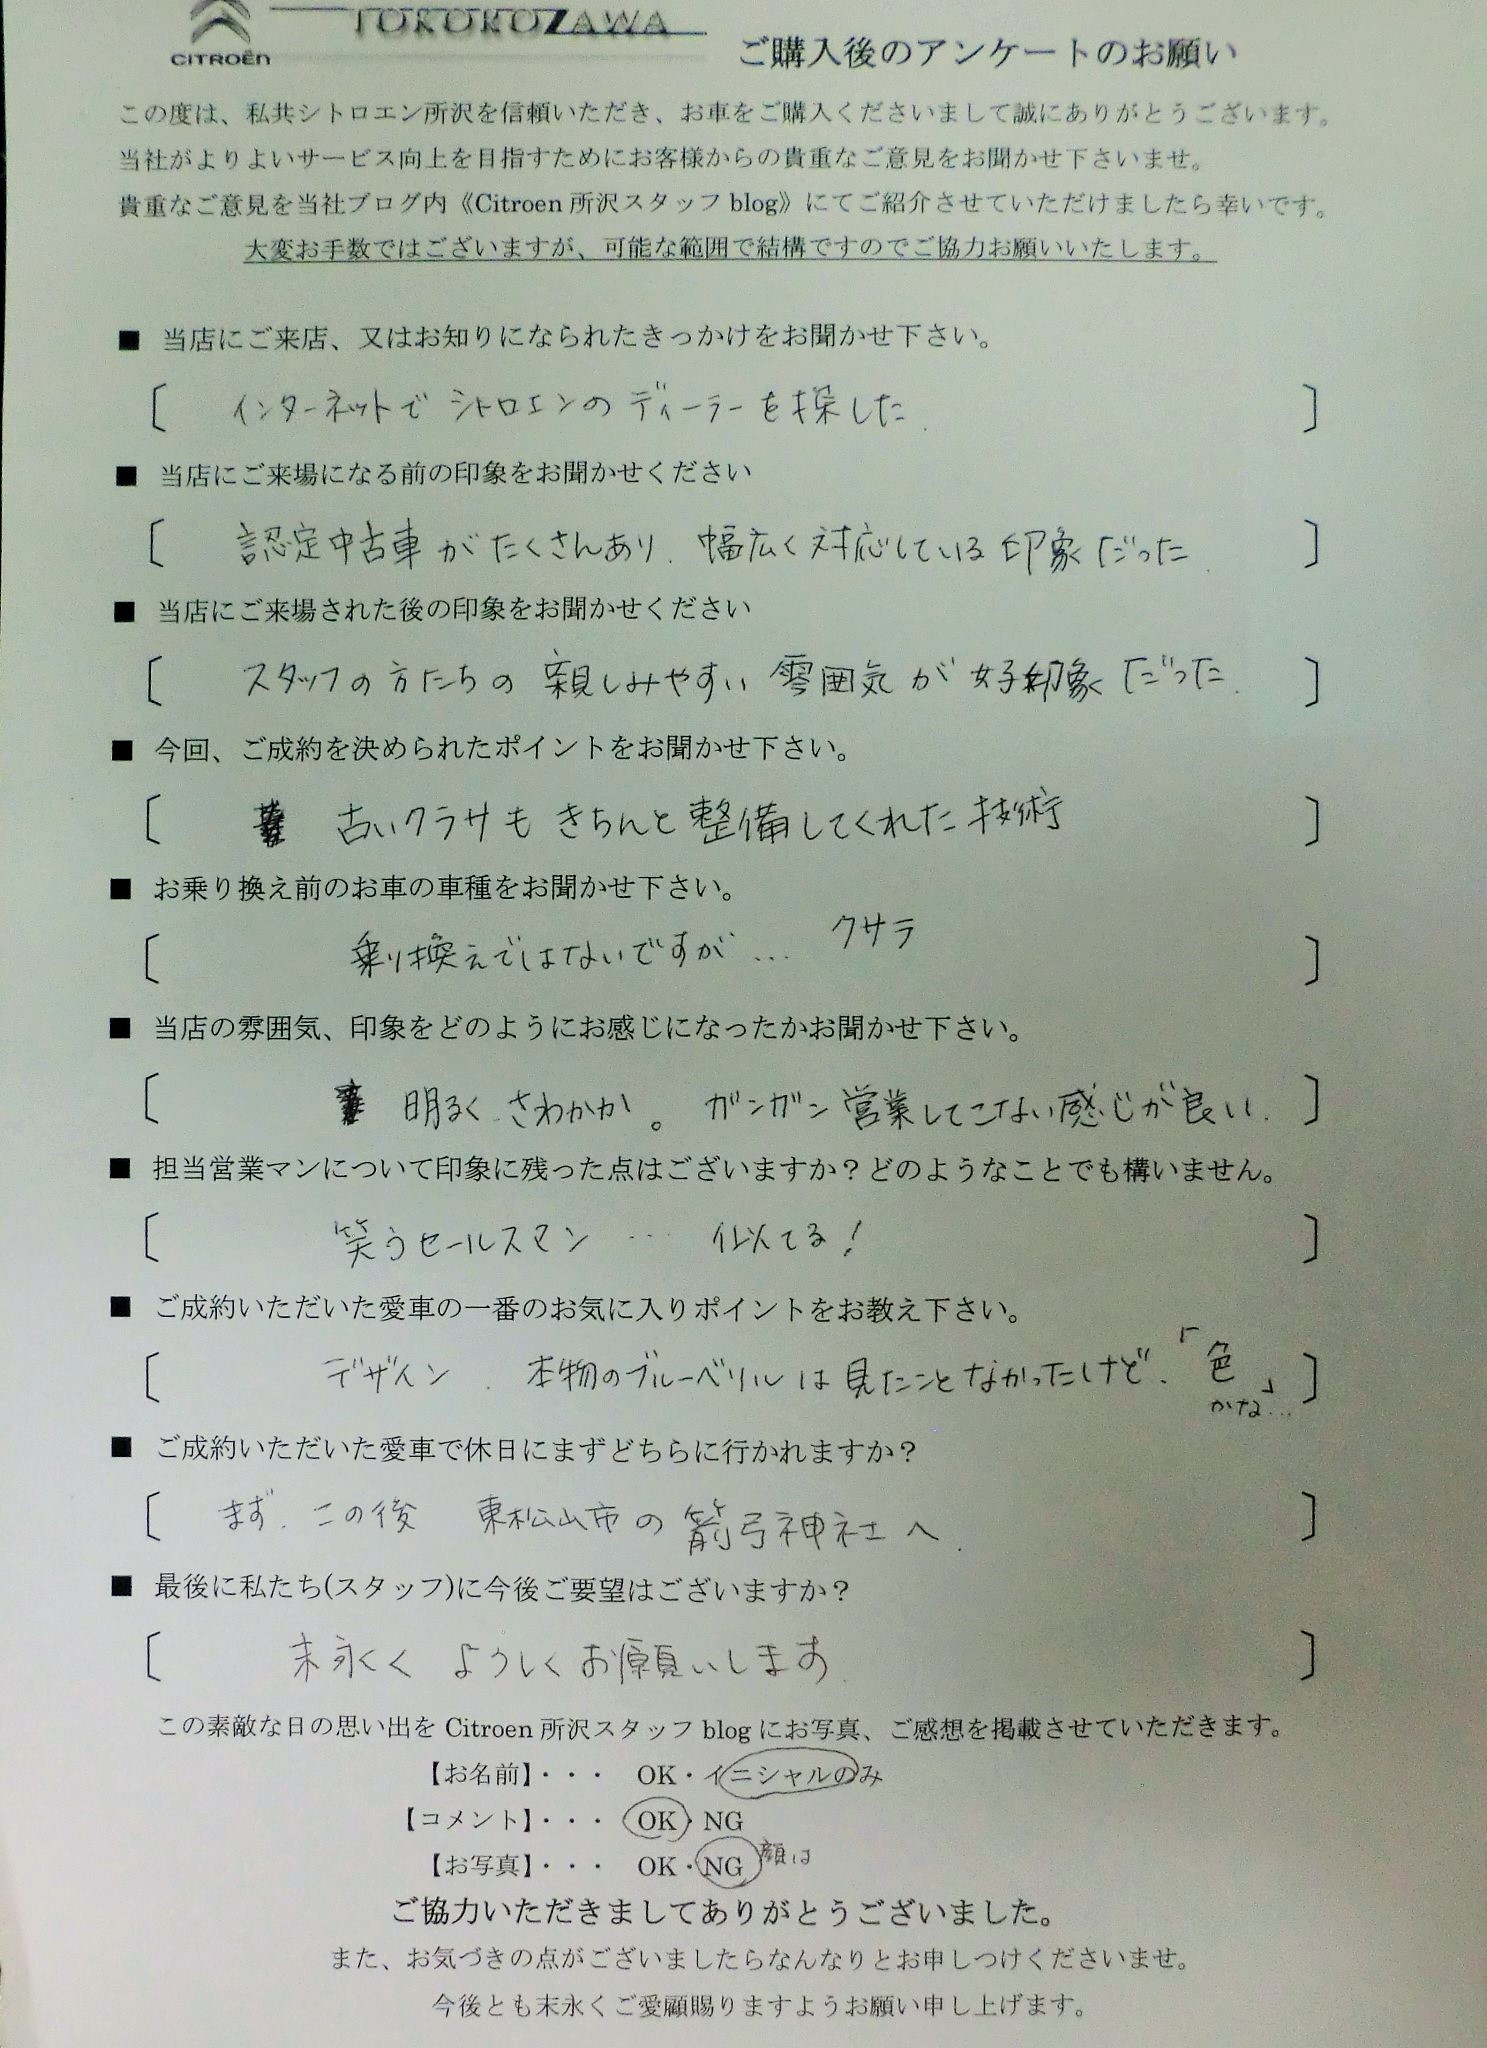 CITROËN
TOKOROZAWA
ご購入後のアンケートのお願い
この度は、私共シトロエン所沢を信頼いただき、お車をご購入くださいまして誠にありがとうございます。
当社がよりよいサービス向上を目指すためにお客様からの貴重なご意見をお聞かせ下さいませ。
貴重なご意見を当社ブログ内《Citroen 所沢スタッフ blog》にてご紹介させていただけましたら幸いです。
大変お手数ではございますが、可能な範囲で結構ですのでご協力お願いいたします。
■ 当店にご来店、又はお知りになられたきっかけをお聞かせ下さい。
〔 インターネットで シトロエンの ディーラーを探した. 〕
■ 当店にご来場になる前の印象をお聞かせください
〔 認定中古車がたくさんあり、幅広く対応している印象だった. 〕
■ 当店にご来場された後の印象をお聞かせください
〔 スタッフの方たちの 親しみやすい 雰囲気が 好印象だった. 〕
■ 今回、ご成約を決められたポイントをお聞かせ下さい。
〔 古いクラサも きちんと整備してくれた技術 〕
■ お乗り換え前のお車の車種をお聞かせ下さい。
〔 乗り換えではないですが… クサラ 〕
■ 当店の雰囲気、印象をどのようにお感じになったかお聞かせ下さい。
〔 明るく さわかか。 ガンガン営業してこない感じが良い. 〕
■ 担当営業マンについて印象に残った点はございますか?どのようなことでも構いません。
〔 笑うセールスマン … 似てる! 〕
■ ご成約いただいた愛車の一番のお気に入りポイントをお教え下さい。
〔 デザイン. 本物のブルーベリルは見たことなかったけど、「色」かな… 〕
■ ご成約いただいた愛車で休日にまずどちらに行かれますか?
〔 まず、この後 東松山市の 箭弓神社へ. 〕
■ 最後に私たち(スタッフ)に今後ご要望はございますか?
〔 末永く よろしくお願いします. 〕
この素敵な日の思い出を Citroen 所沢スタッフ blog にお写真、ご感想を掲載させていただきます。
【お名前】・・・ OK・イニシャルのみ
【コメント】・・・ OK・NG
【お写真】・・・ OK・NG 顔は
ご協力いただきましてありがとうございました。
また、お気づきの点がございましたらなんなりとお申しつけくださいませ。
今後とも末永くご愛顧賜りますようお願い申し上げます。